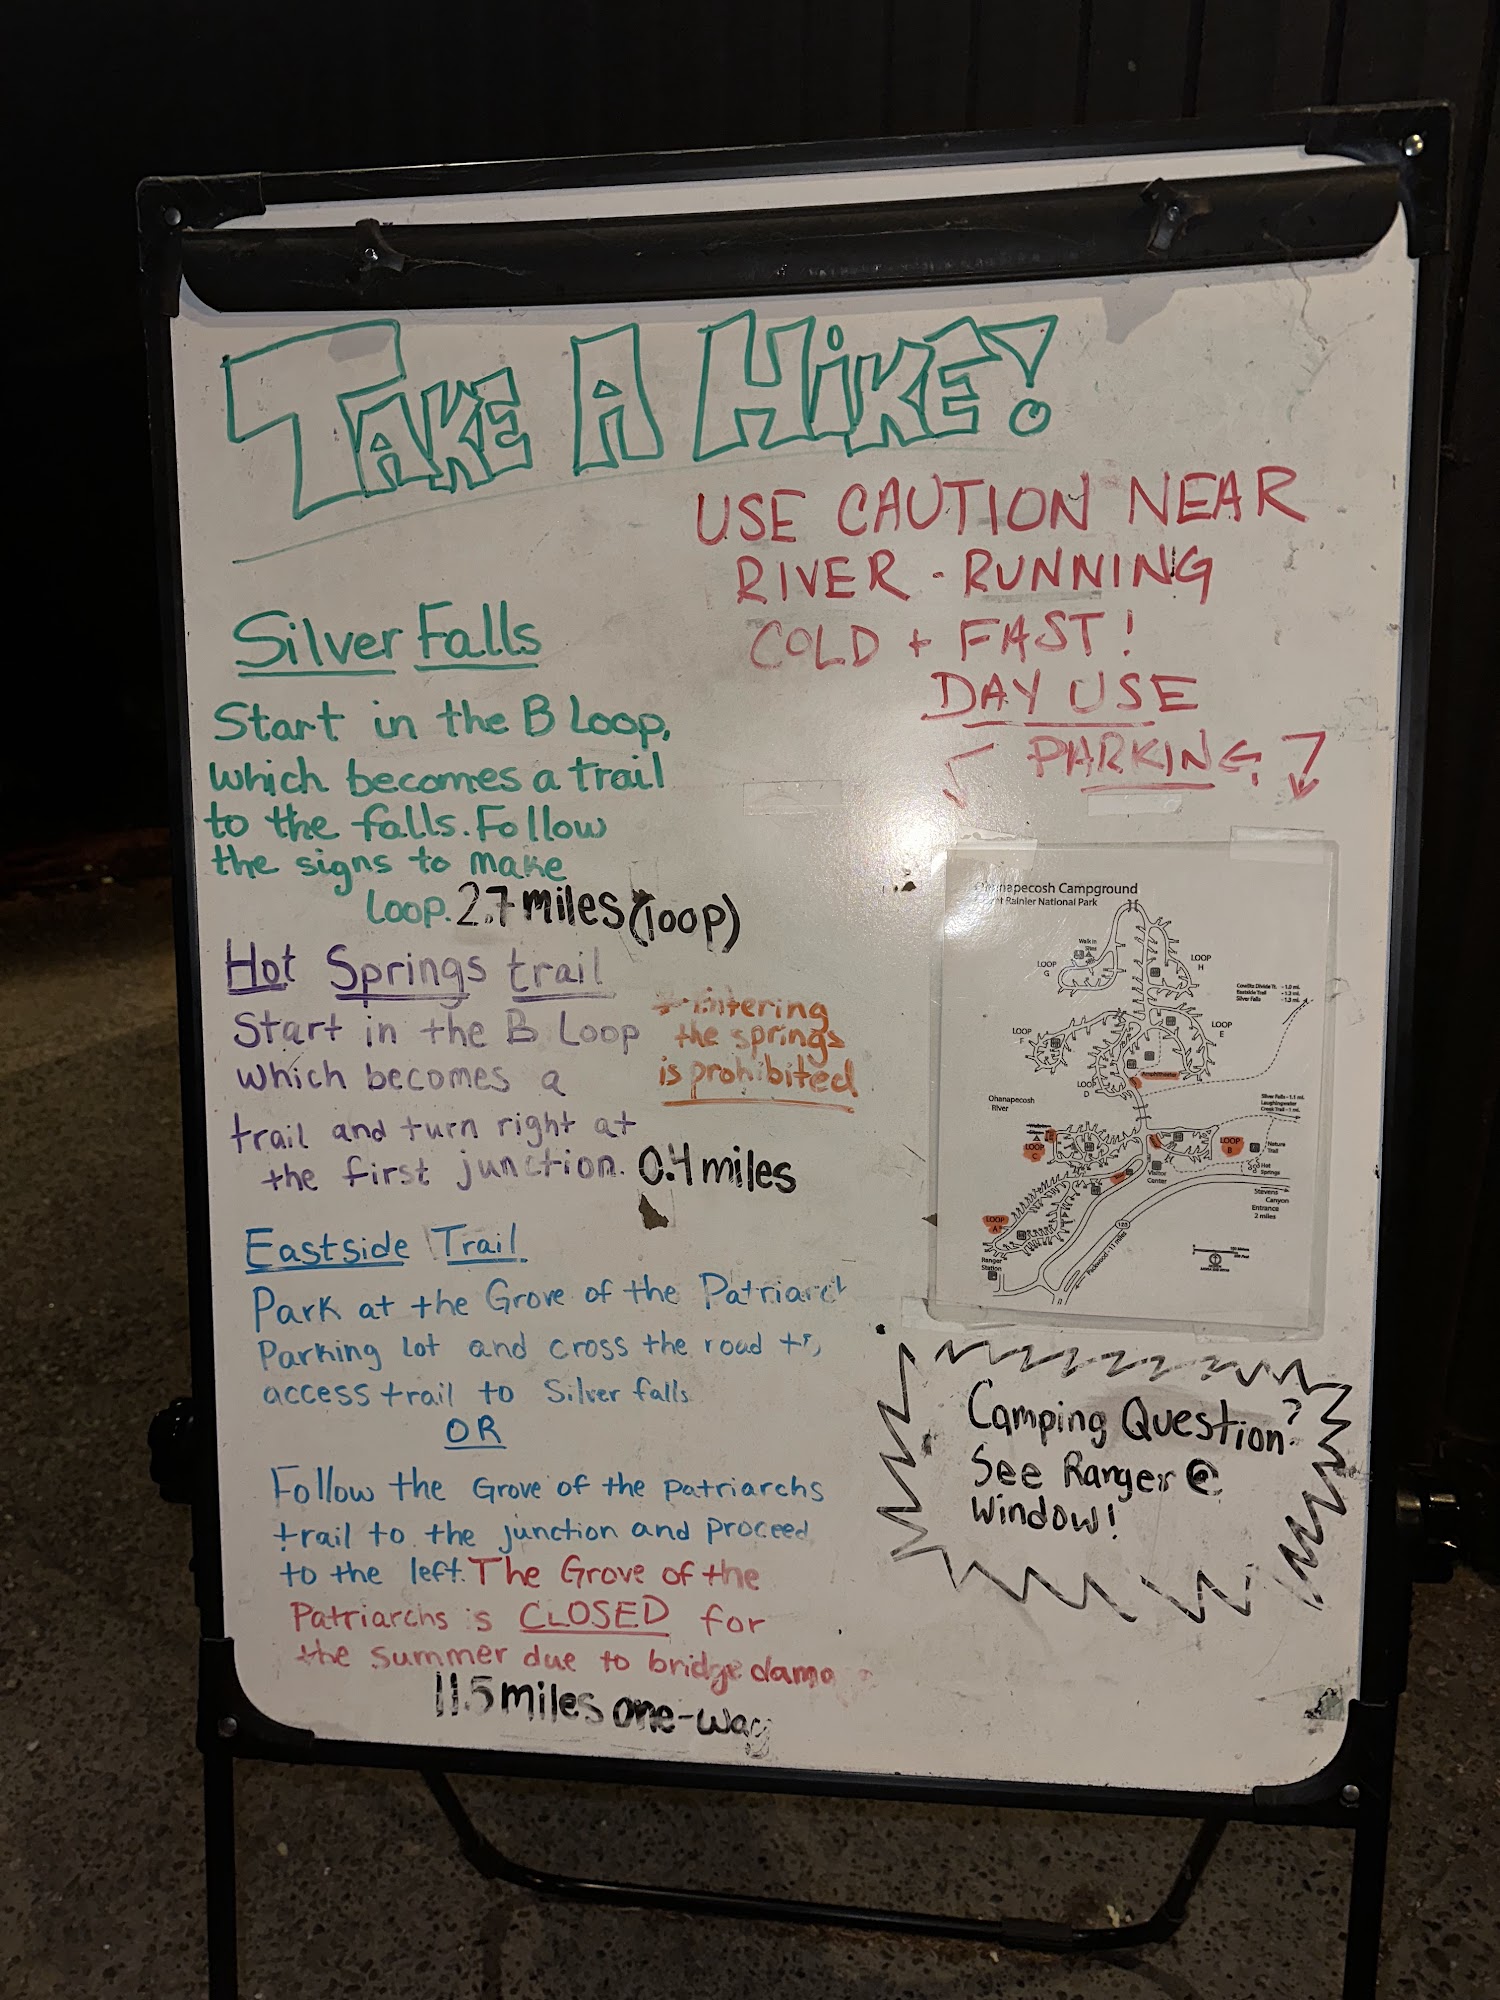 TAKE A HIKE!
USE CAUTION NEAR
RIVER - RUNNING
COLD + FAST!
DAY USE
PARKING
Silver Falls
Start in the B Loop,
which becomes a trail
to the falls. Follow
the signs to make
Loop. 2.7 miles (loop)
Hot Springs trail
Start in the B Loop
which becomes a
trail and turn right at
the first junction. 0.4 miles
the springs
is prohibited
Eastside Trail
Park at the Grove of the
Parking Lot and cross the road
access trail to Silver falls
OR
Follow the Grove of the Patriarchs
trail to the junction and proceed
to the left. The Grove of the
Patriarchs is CLOSED for
the summer due to bridge
11.5 miles one-way
Ohanapecosh Campground
Rainier National Park
Walk in
Sites
LOOP
G
LOOP
H
Cowlitz Divide Tr. - 1.0 mi.
Eastside Trail - 1.2 mi.
Silver Falls - 1.3 mi.
LOOP
F
LOOP
E
LOOP
D
Amphitheater
Ohanapecosh
River
Silver Falls - 1.1 mi.
Laughingwater
Creek Trail - 1 mi.
LOOP
C
LOOP
B
Nature
Trail
Hot
Springs
Visitor
Center
Stevens
Canyon
Entrance
2 miles
LOOP
A
123
Packwood - 11 miles
Ranger
Station
Camping Question?
See Ranger @
Window!